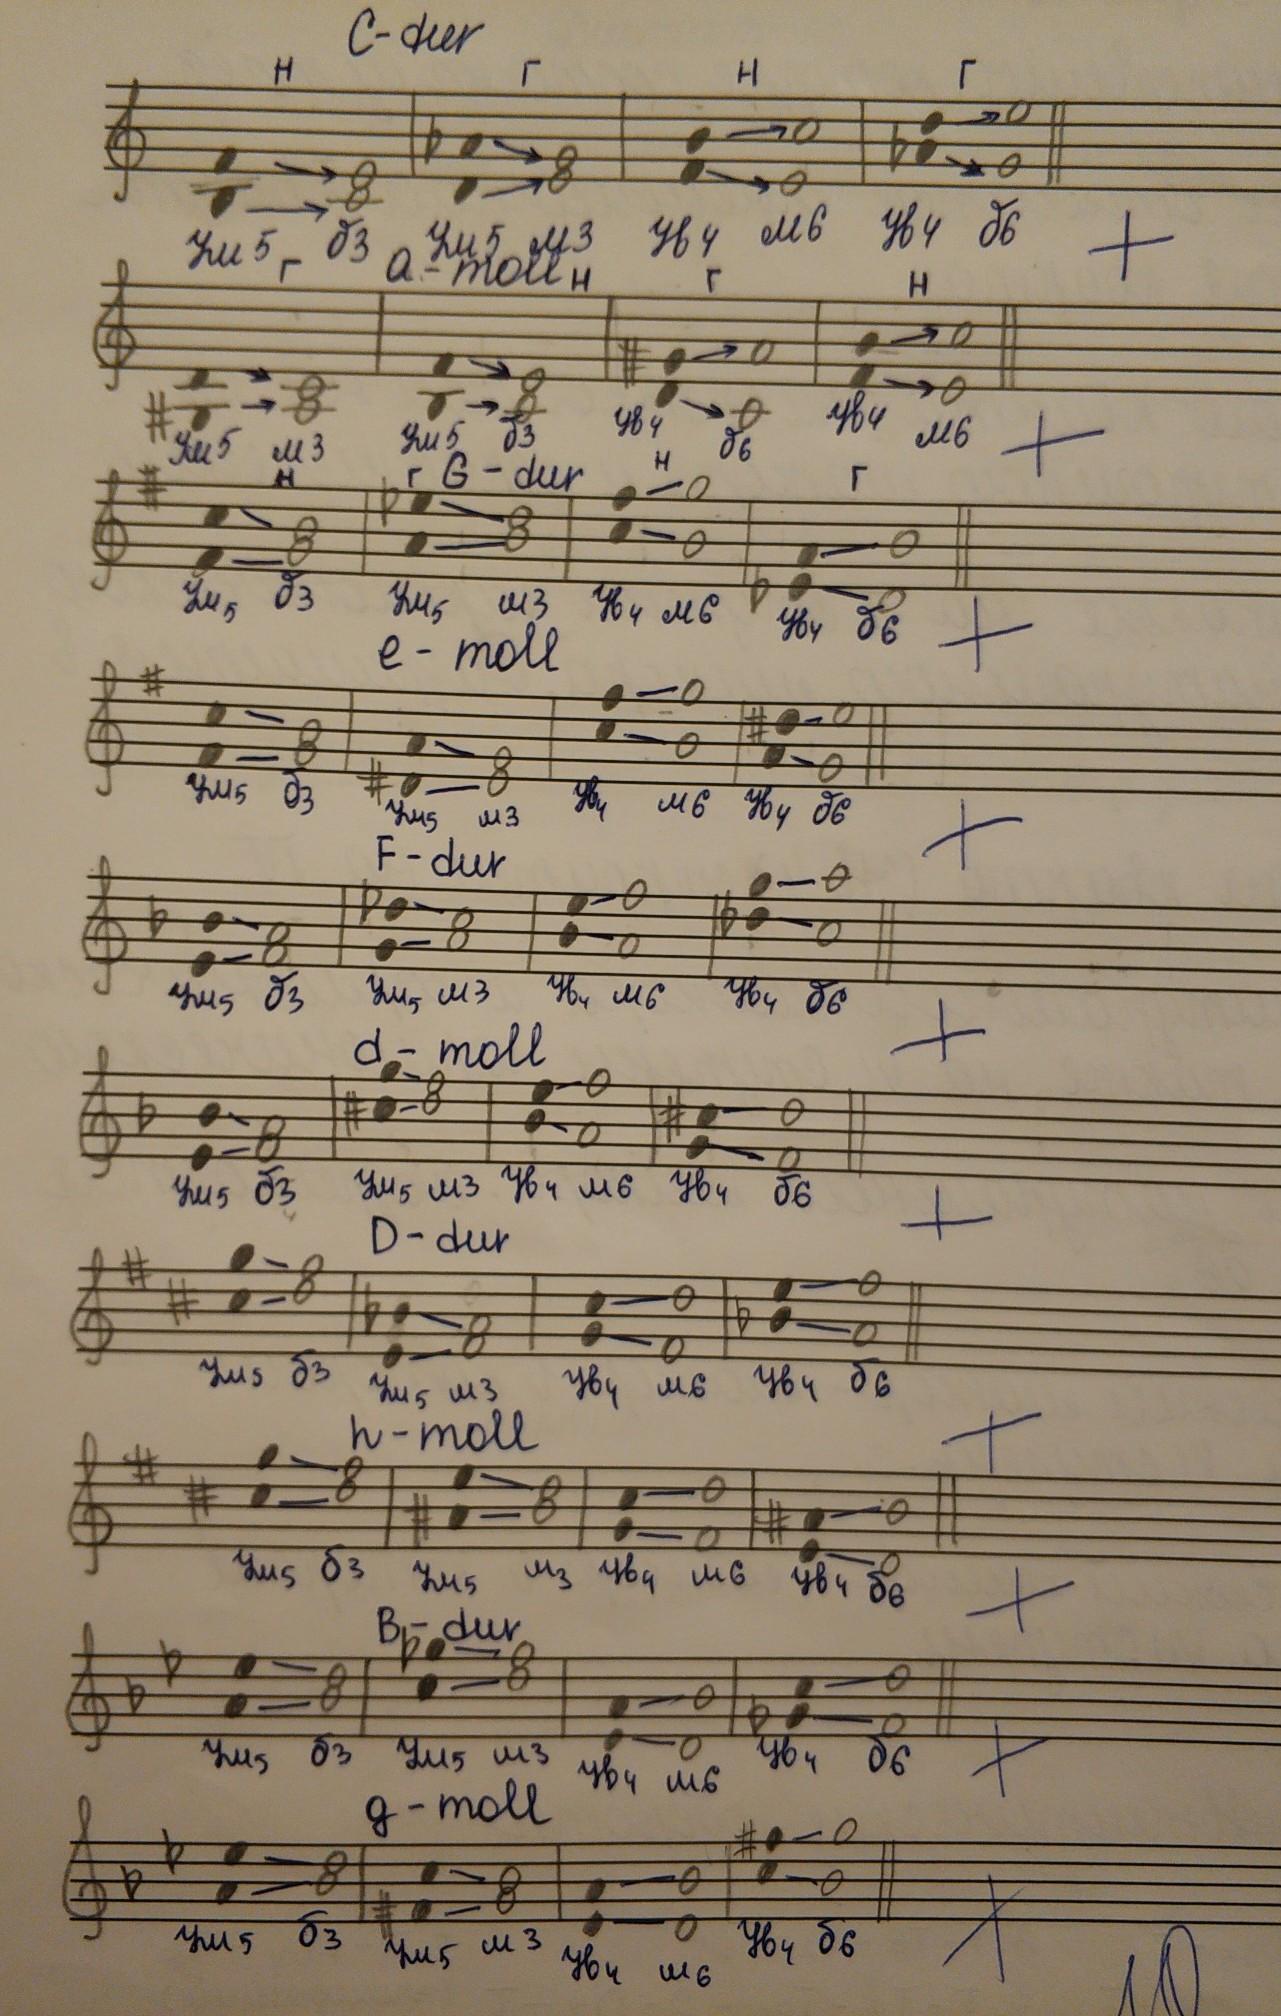 C-dur
н г н г
ум5 б3 ум5 м3 ув4 м6 ув4 б6
a-moll
г н г н
ум5 м3 ум5 б3 ув4 б6 ув4 м6
G-dur
н г н г
ум5 б3 ум5 м3 ув4 м6 ув4 б6
e-moll
ум5 б3 ум5 м3 ув4 м6 ув4 б6
F-dur
ум5 б3 ум5 м3 ув4 м6 ув4 б6
d-moll
ум5 б3 ум5 м3 ув4 м6 ув4 б6
D-dur
ум5 б3 ум5 м3 ув4 м6 ув4 б6
h-moll
ум5 б3 ум5 м3 ув4 м6 ув4 б6
B-dur
ум5 б3 ум5 м3 ув4 м6 ув4 б6
g-moll
ум5 б3 ум5 м3 ув4 м6 ув4 б6
10